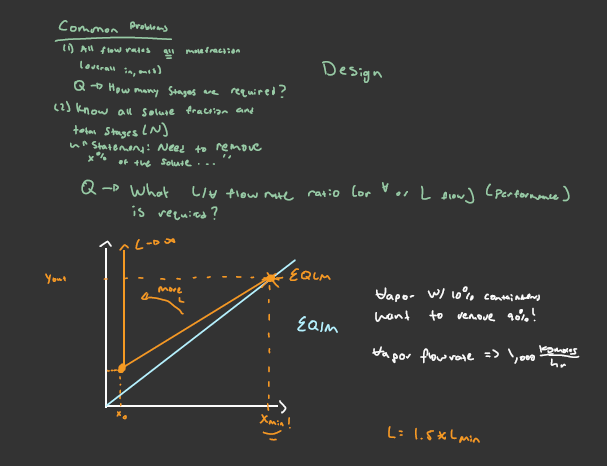 Common Problems
(1) All flow rates all molefraction
(overall in, out)
Q → How many Stages are required?
(2) Know all solute fraction and
total stages (N)
Statement: Need to remove
x% of the solute ..."
Q → What L/V flow rate ratio (or V or L flow) (performance)
is required?
Design
L → ∞
Yout
more
L
EQLM
EQLM
x₀
Xmin!
Vapor w/ 10% contaminants
want to remove 90%!
Vapor flowrate => 1,000 kgmoles/hr
L = 1.5 * Lmin